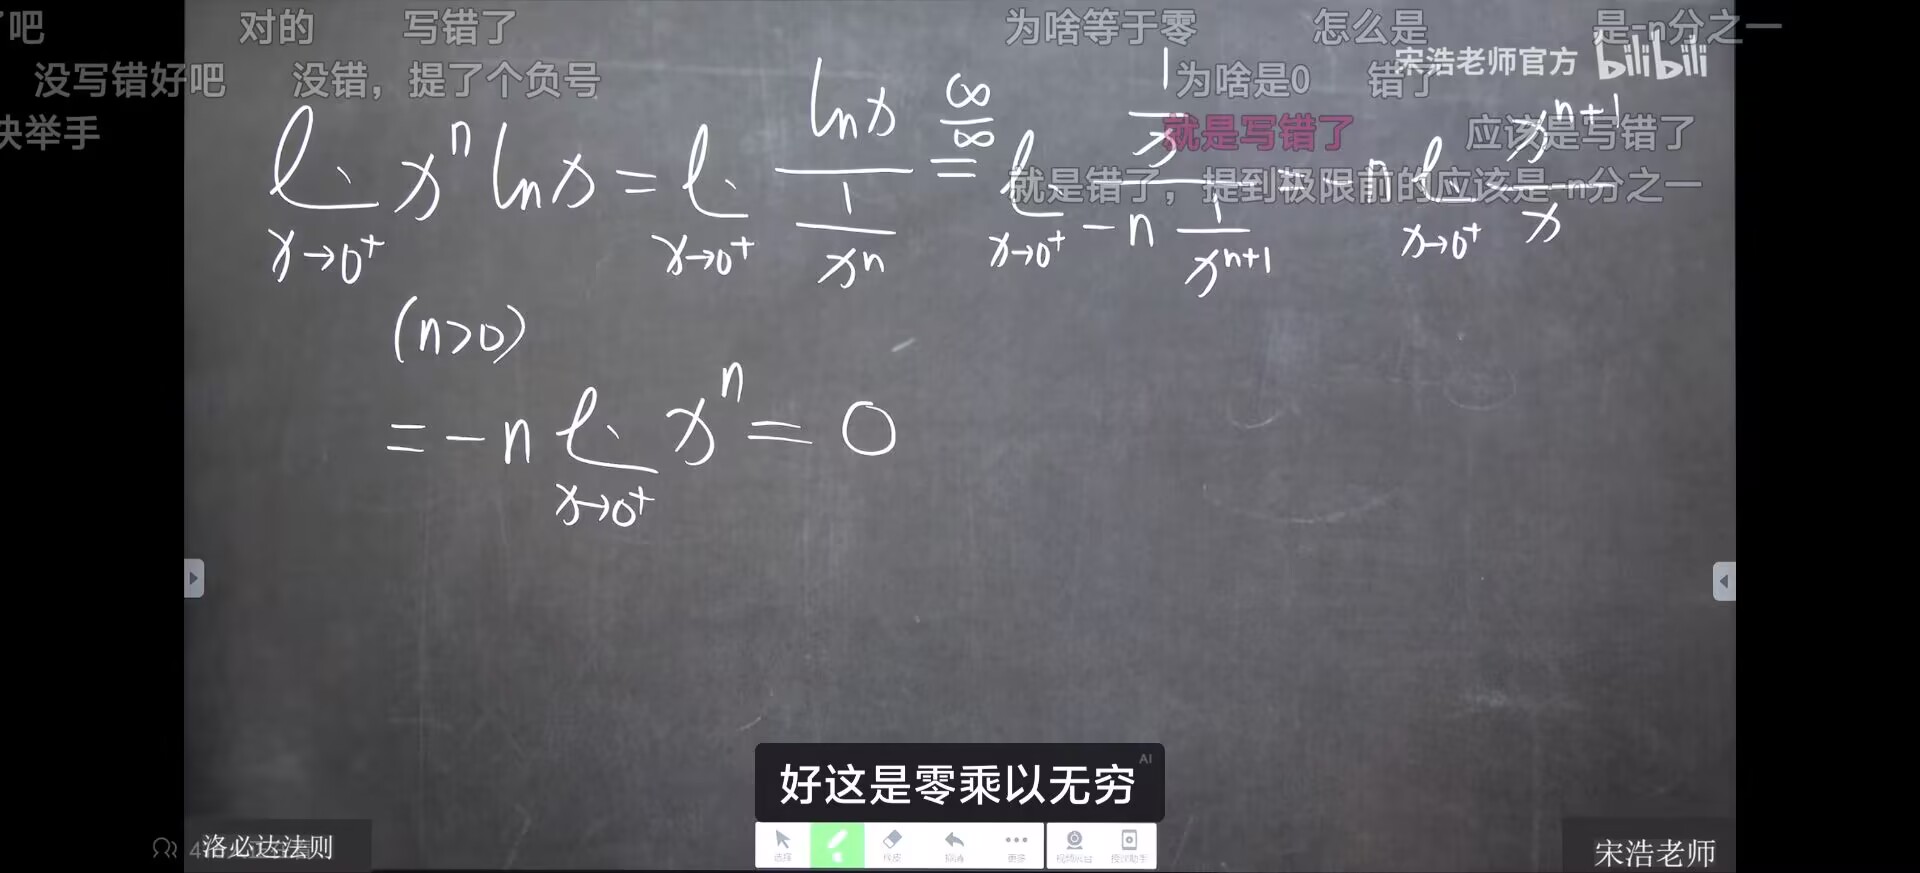 了吧 对的 写错了 为啥等于零 怎么是 是-n分之一
没写错好吧 没错，提了个负号 为啥是0 错了 宋浩老师官方 bilibili
快举手 就是写错了 应该是写错了
就是错了，提到极限前的应该是-n分之一
lim x→0⁺ xⁿ ln x = lim x→0⁺ (ln x)/(1/xⁿ) =(∞/∞) lim x→0⁺ (1/x)/(-n 1/xⁿ⁺¹) = -n lim x→0⁺ xⁿ⁺¹/x
(n>0)
= -n lim x→0⁺ xⁿ = 0
好这是零乘以无穷
AI
选择 更多
洛必达法则
宋浩老师